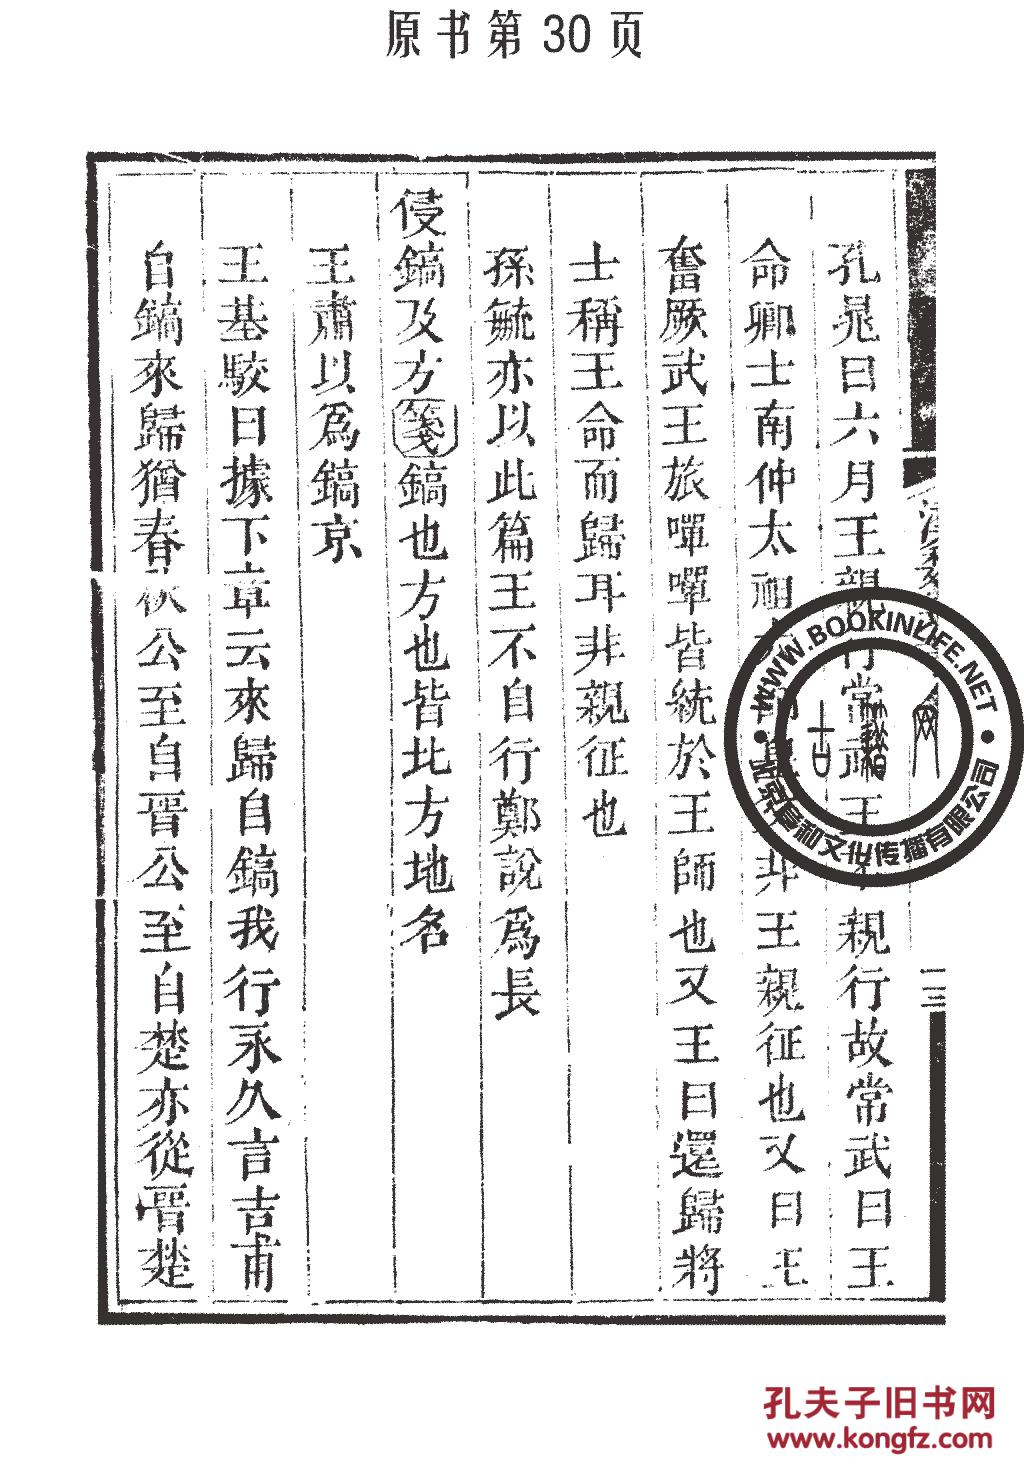 原书第30页
孔晁曰六月王親行常武王親行故常武曰王
命卿士南仲太祖非王親征也又曰王
奮厥武王旅嘽嘽皆統於王師也又王曰還歸將
士稱王命而歸耳非親征也
孫毓亦以此篇王不自行鄭說爲長
侵鎬及方箋鎬也方也皆北方地名
王肅以爲鎬京
王基駮曰據下章云來歸自鎬我行永久言吉甫
自鎬來歸猶春秋公至自晋公至自楚亦從晋楚
WWW.BOOKINLIFE.NET
文化传播有限公司
孔夫子旧书网
www.kongfz.com